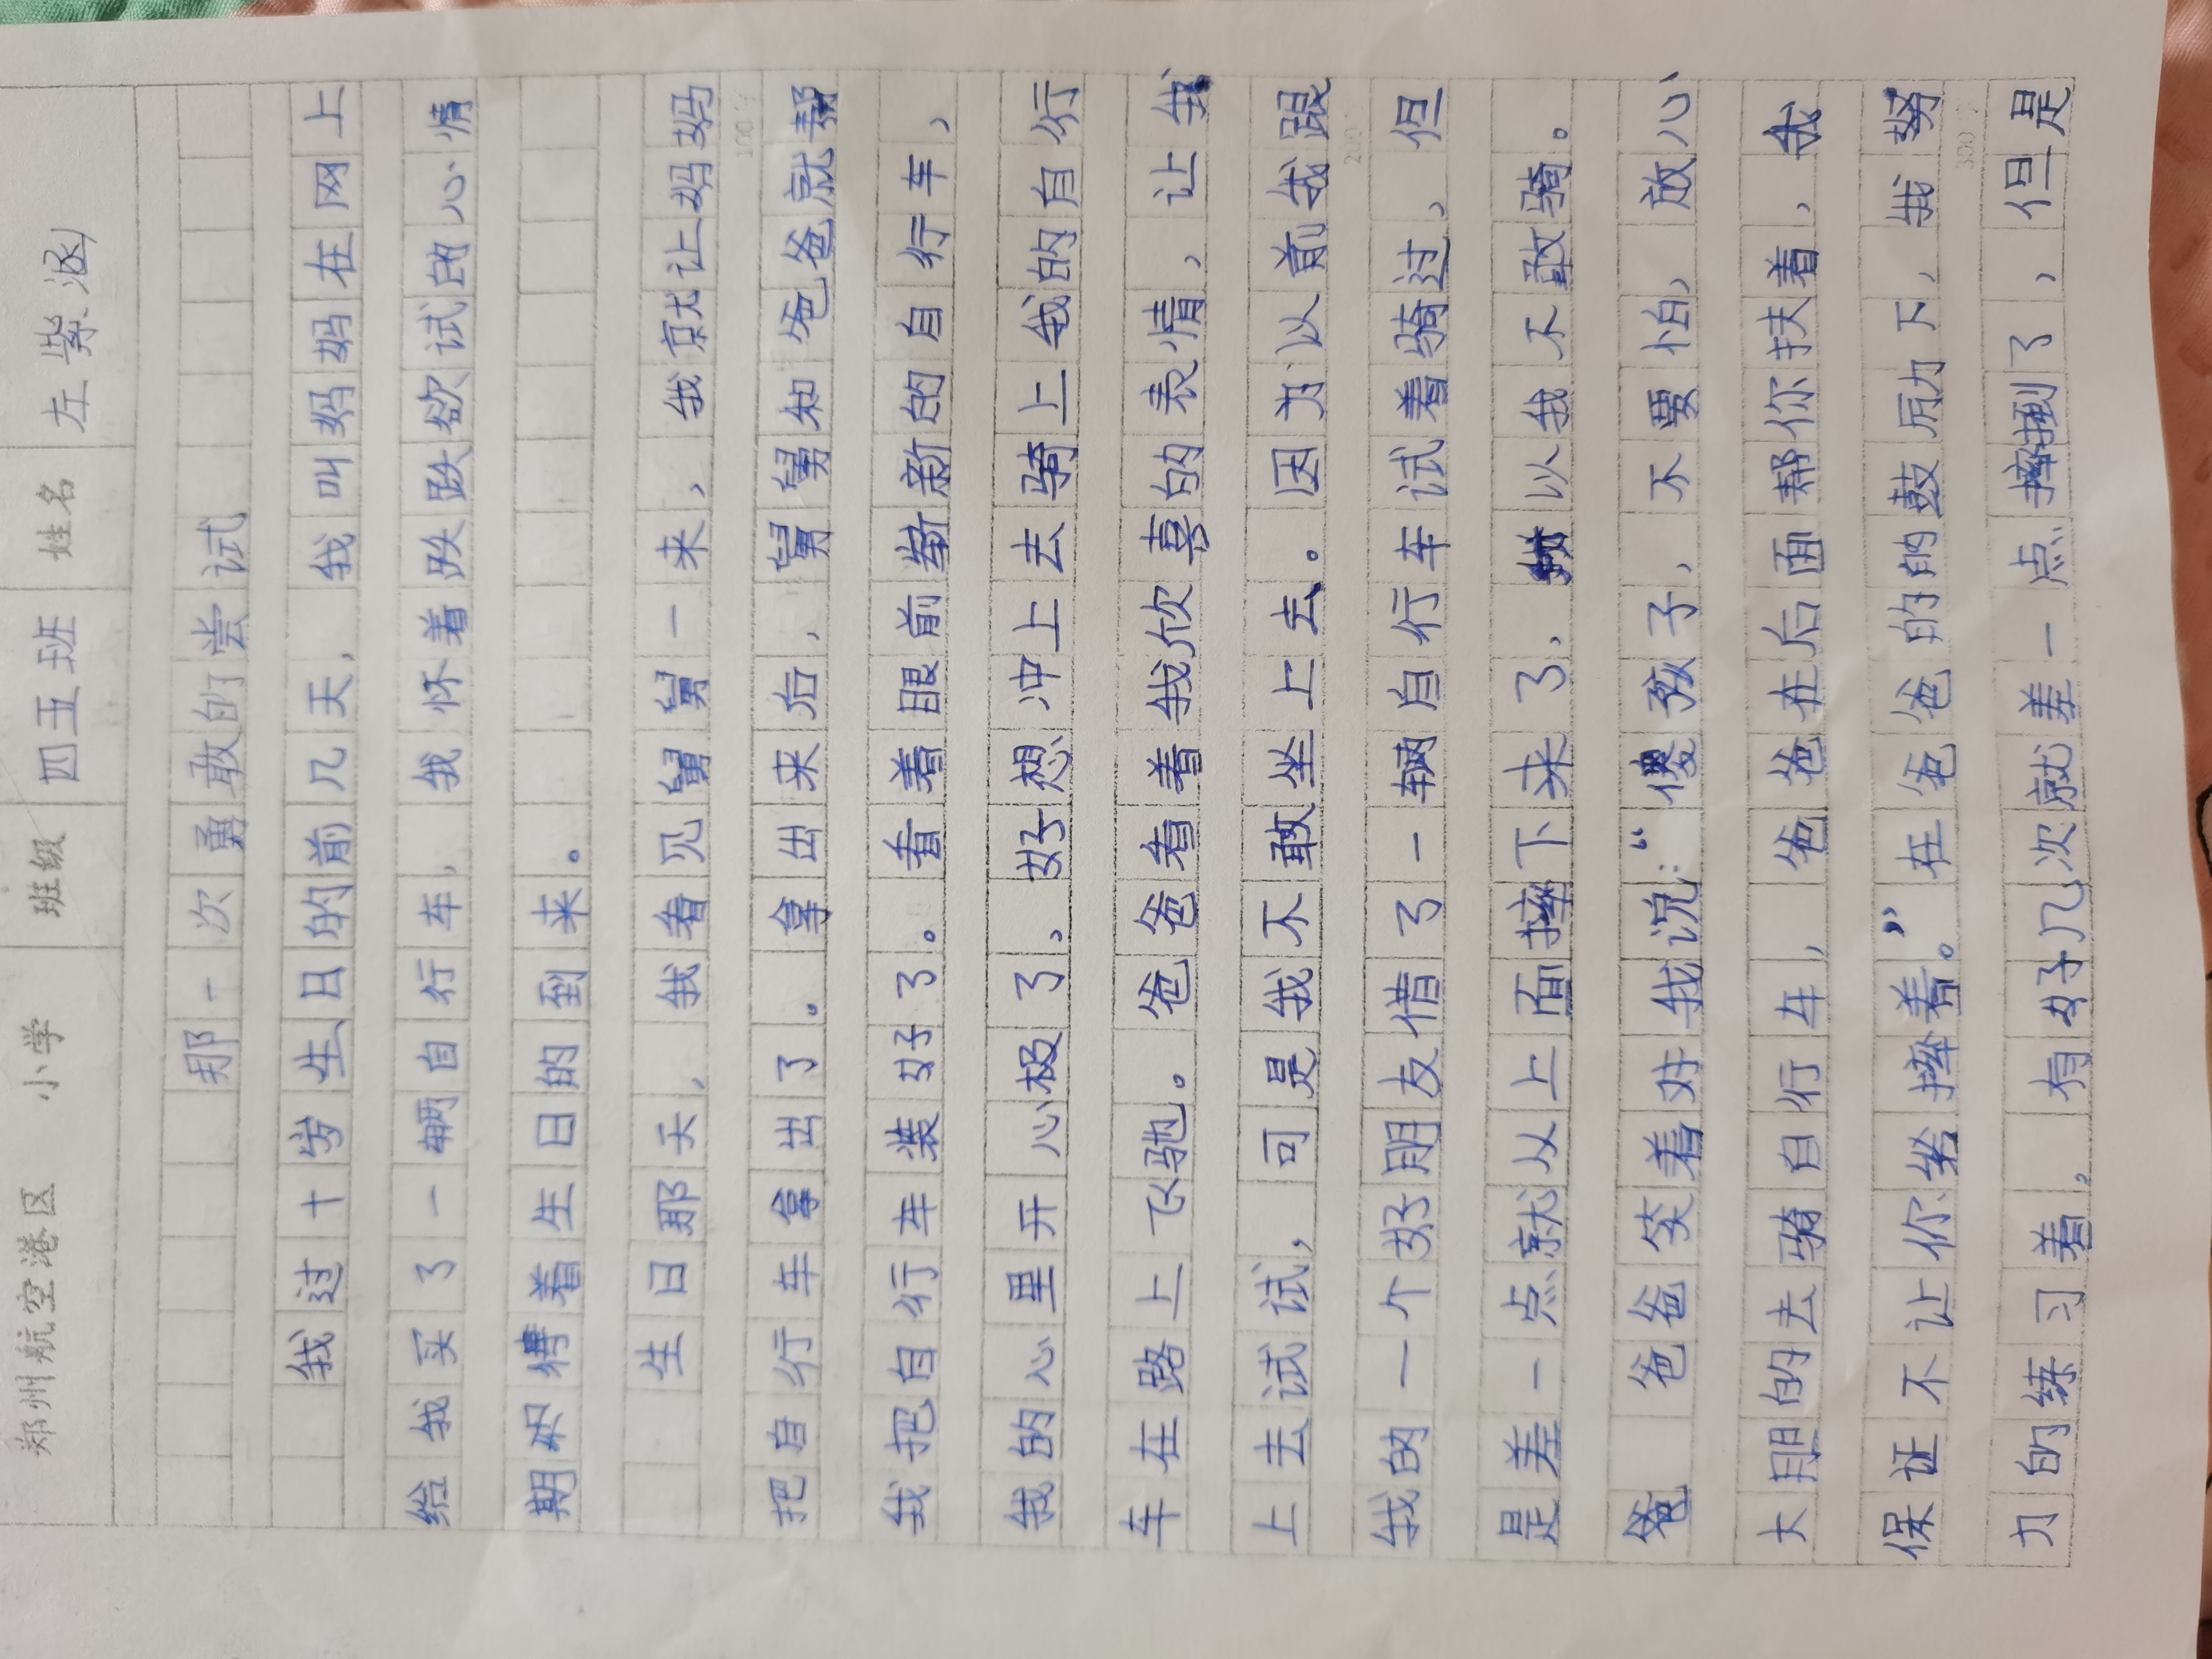 郑州航空港区 小学 班级 四五班 姓名 左紫涵
那一次勇敢的尝试
我过十岁生日的前几天，我叫妈妈在网上
给我买了一辆自行车，我怀着跃跃欲试的心情
期积待着生日的到来。
生日那天，我看见舅舅一来，我就让妈妈
100字
把自行车拿出了。拿出来后，舅舅和爸爸就帮
我把自行车装好了。看着眼前崭新的自行车，
我的心里开心极了，好想冲上去骑上我的自行
车在路上飞驰。爸爸看着我欣喜的表情，让我
上去试试，可是我不敢坐上去。因为以前我跟
200字
我的一个好朋友借了一辆自行车试着骑过，但
是差一点就从上面摔下来了，以我不敢骑。
爸爸笑着对我说：“傻孩子，不要怕，放心
大胆的去骑自行车，爸爸在后面帮你扶着，我
保证不让你摔着。”在爸爸的的鼓励下，我努
300字
力的练习着，有好几次就差一点摔倒了，但是